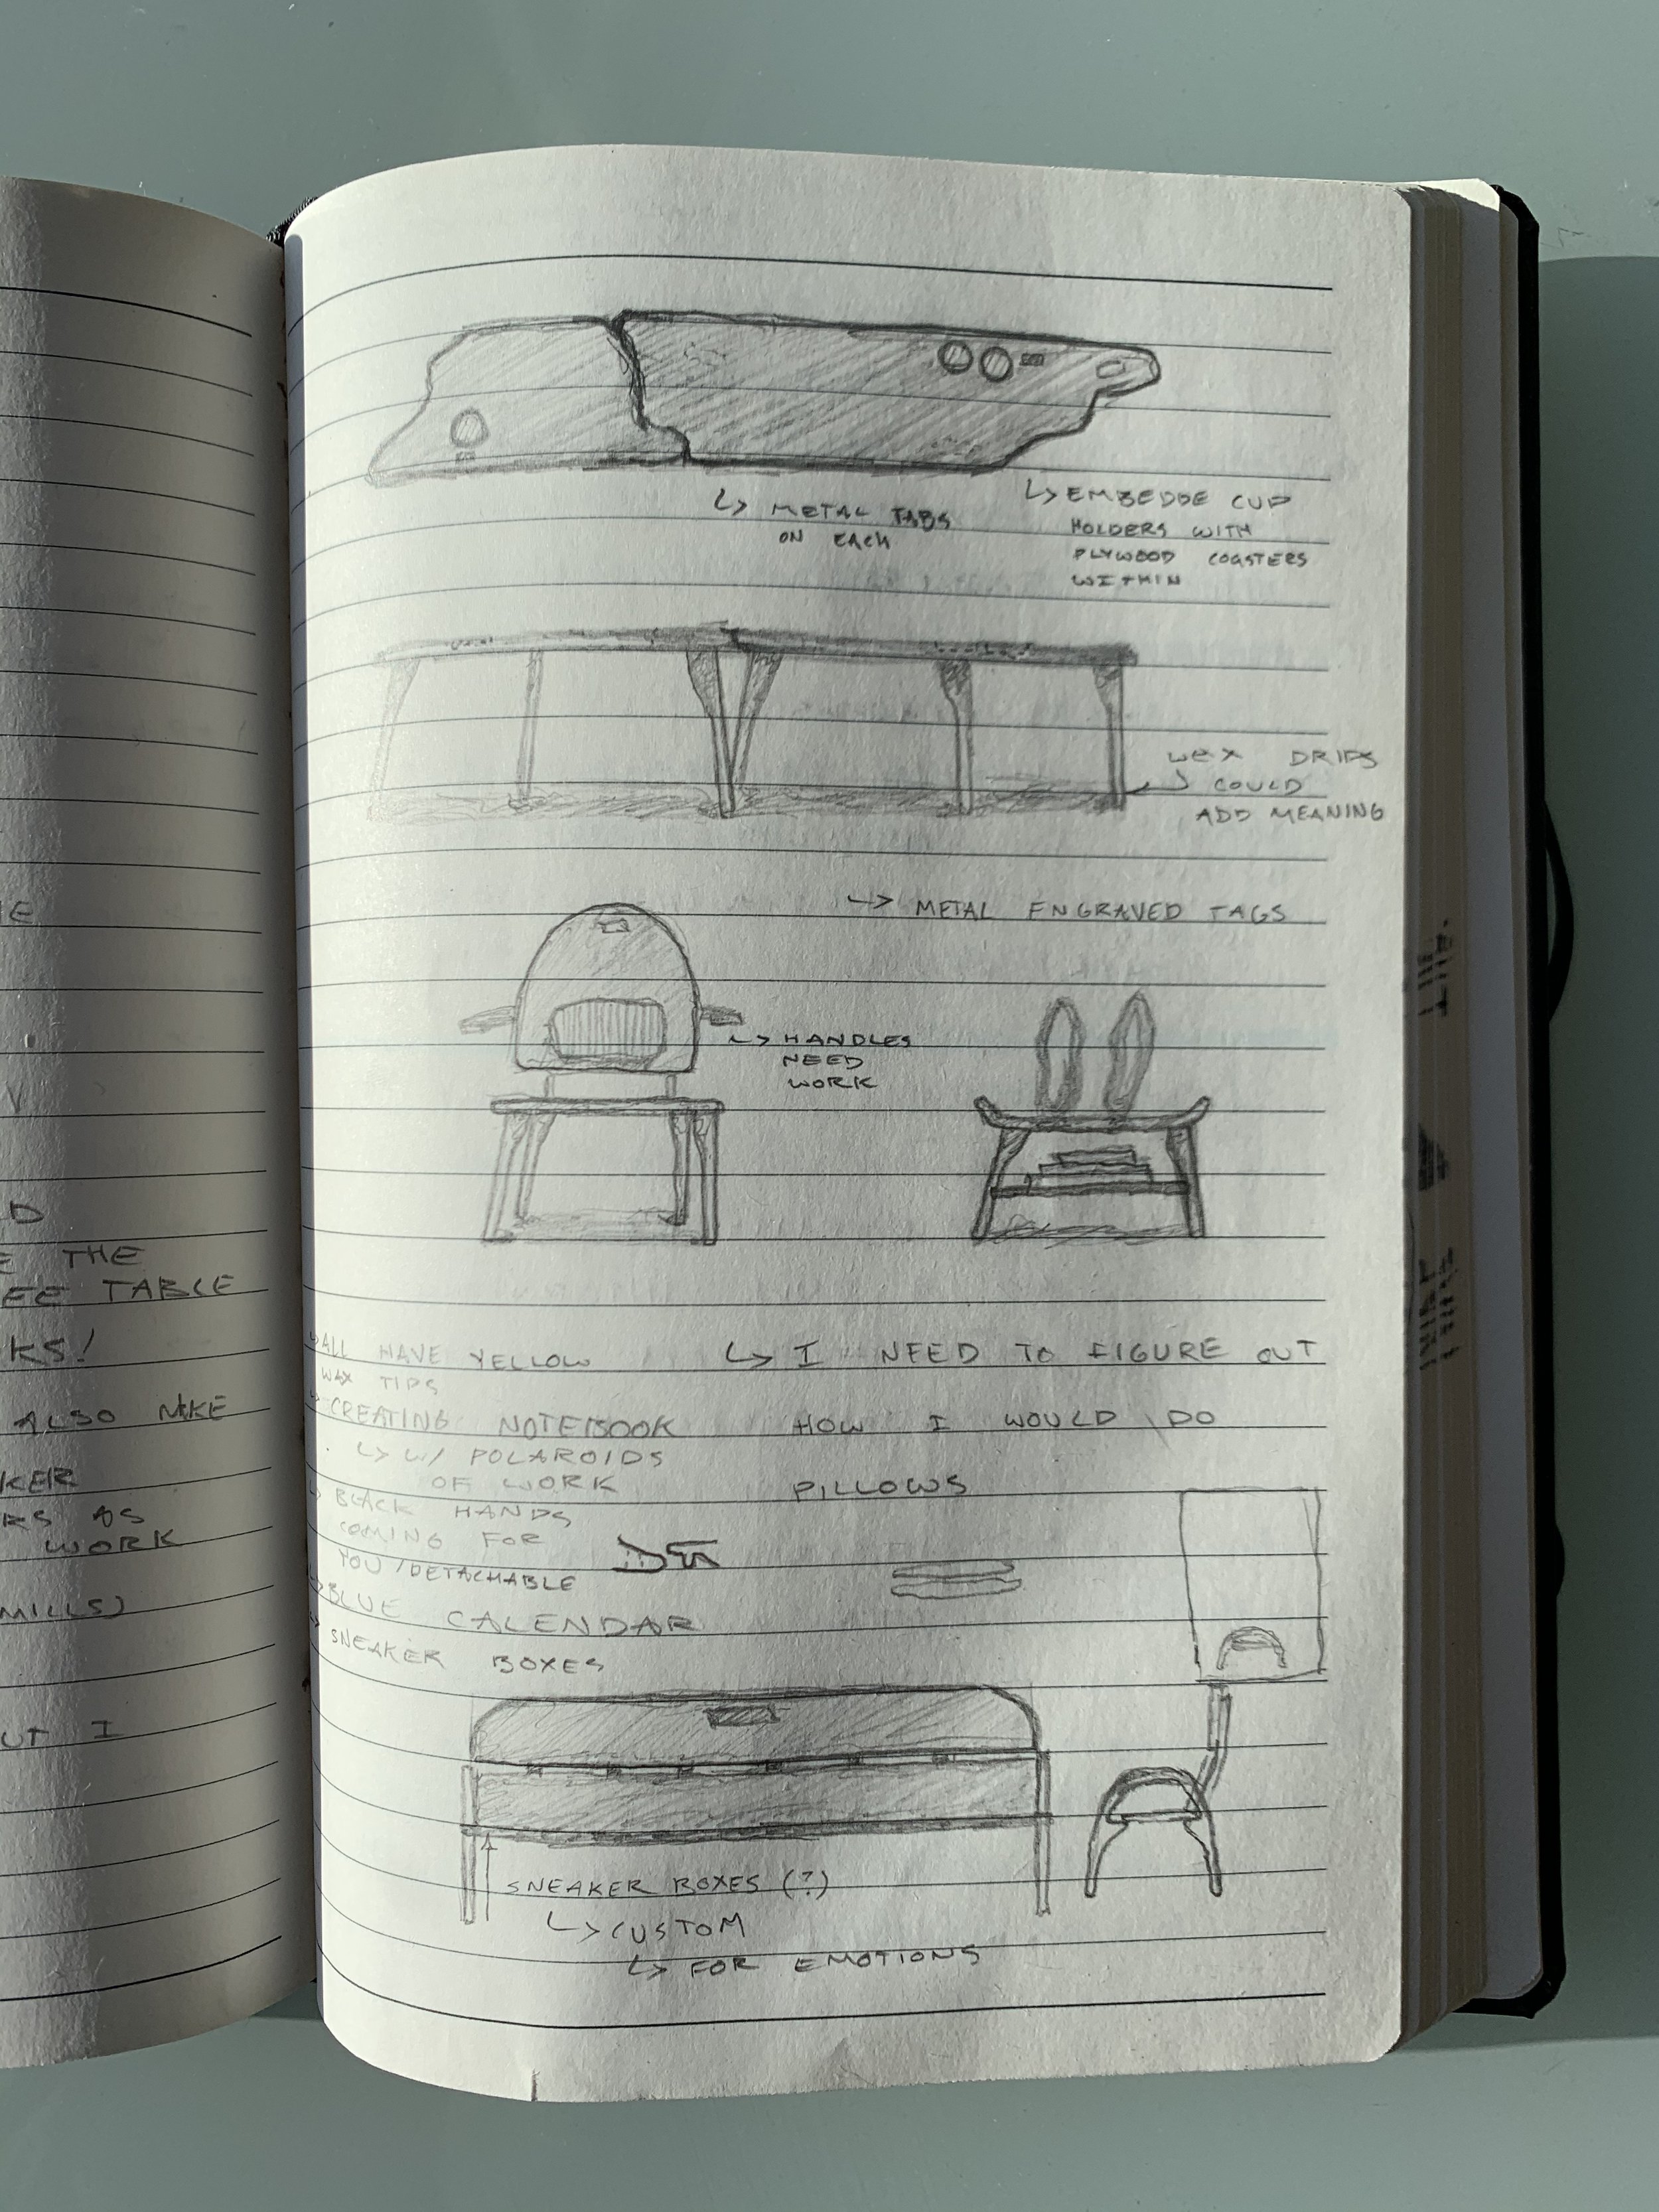 METAL TABS
ON EACH
EMBEDDE CUP
HOLDERS WITH
PLYWOOD COASTERS
WITHIN
WAX DRIPS
COULD
ADD MEANING
METAL ENGRAVED TAGS
HANDLES
NEED
WORK
ALL HAVE YELLOW
WAX TIPS
CREATING NOTEBOOK
W/ POLAROIDS
OF WORK
BLACK HANDS
COMING FOR
YOU/DETACHABLE
BLUE CALENDAR
SNEAKER BOXES
I NEED TO FIGURE OUT
HOW I WOULD DO
PILLOWS
SNEAKER BOXES (?)
CUSTOM
FOR EMOTIONS
THE
TABLE
ALSO MAKE
AS
WORK
MILLS)
I